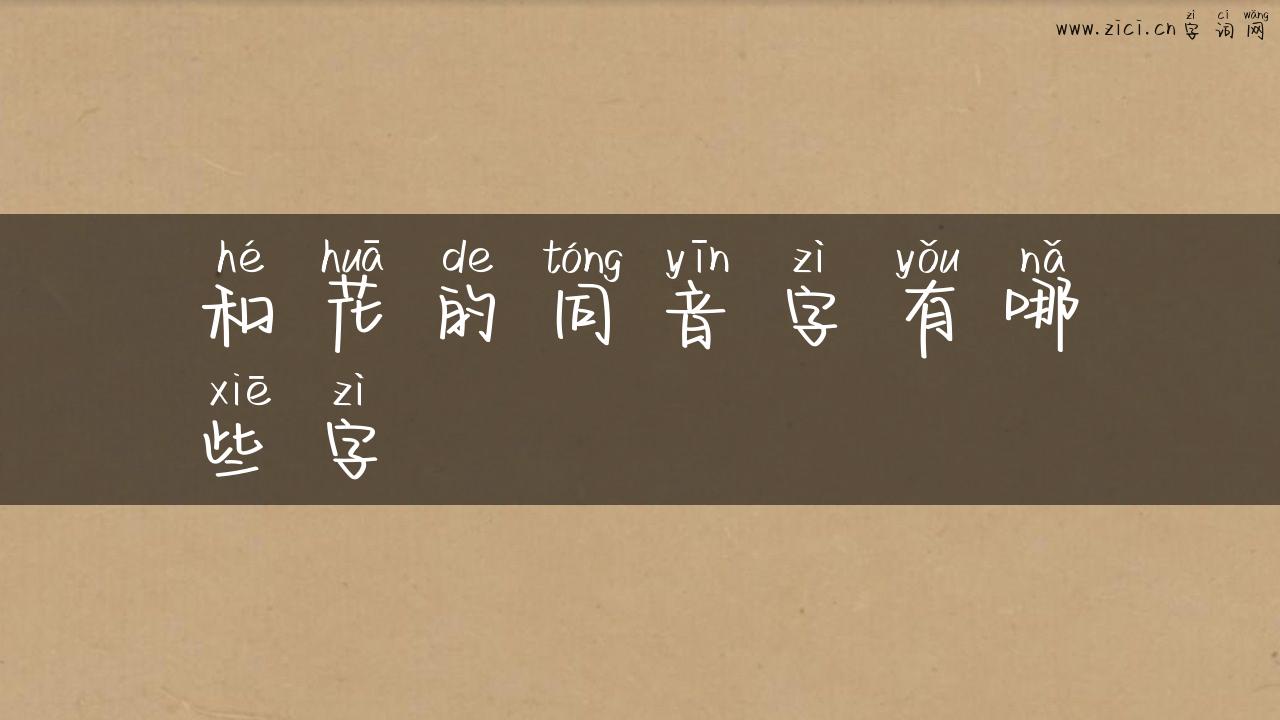 zì cí wǎng
www.zici.cn 字词网
hé huā de tóng yīn zì yǒu nǎ
和花的同音字有哪
xiē zì
些字